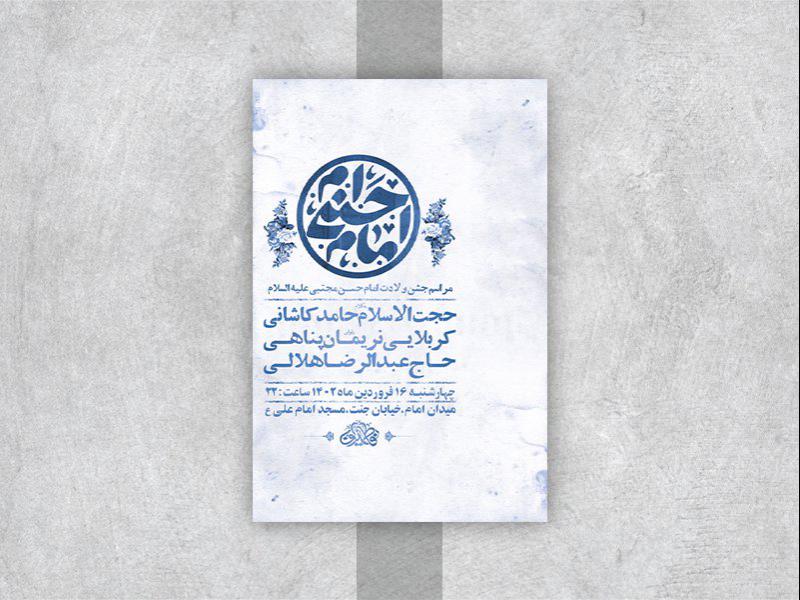 امام حسنی‌ام
مراسم جشن ولادت امام حسن مجتبی علیه السلام
حجت الاسلام حامد کاشانی
کربلایی نریمان پناهی
حاج عبدالرضا هلالی
چهارشنبه ۱۶ فروردین ماه ۱۴۰۲ ساعت: ۲۲
میدان امام، خیابان جنت، مسجد امام علی ع